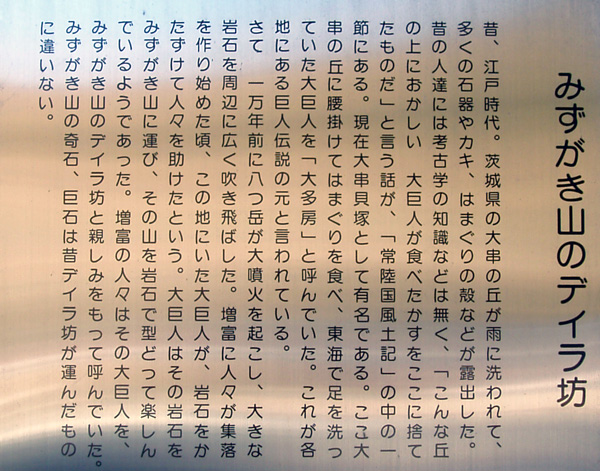 みずがき山のデイラ坊
昔、江戸時代。茨城県の大串の丘が雨に洗われて、
多くの石器やカキ、はまぐりの殻などが露出した。
昔の人達には考古学の知識などは無く、「こんな丘
の上におかしい 大巨人が食べたかすをここに捨て
たものだ」と言う話が、「常陸国風土記」の中の一
節にある。現在大串貝塚として有名である。ここ大
串の丘に腰掛けてはまぐりを食べ、東海で足を洗っ
ていた大巨人を「大多房」と呼んでいた。これが各
地にある巨人伝説の元と言われている。
さて 一万年前に八つ岳が大噴火を起こし、大きな
岩石を周辺に広く吹き飛ばした。増富に人々が集落
を作り始めた頃、この地にいた大巨人が、岩石をか
たずけて人々を助けたという。大巨人はその岩石を
みずがき山に運び、その山を岩石で型どって楽しん
でいるようであった。増富の人々はその大巨人を、
みずがき山のデイラ坊と親しみをもって呼んでいた。
みずがき山の奇石、巨石は昔デイラ坊が運んだもの
に違いない。